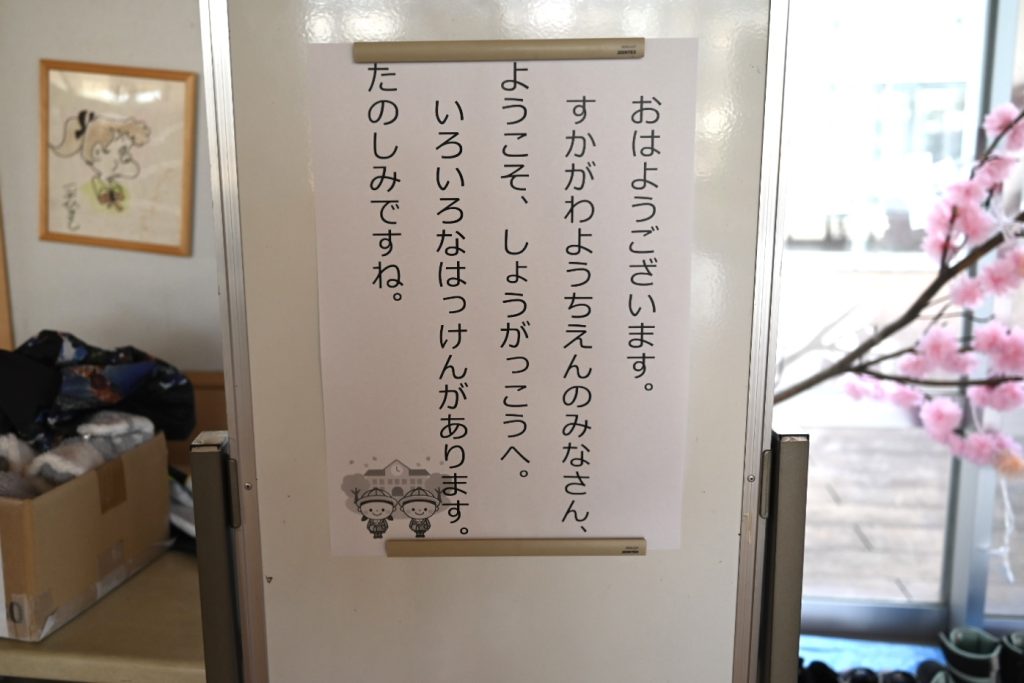 おはようございます。
すかがわようちえんのみなさん、
ようこそ、しょうがっこうへ。
いろいろなはっけんがあります。
たのしみですね。